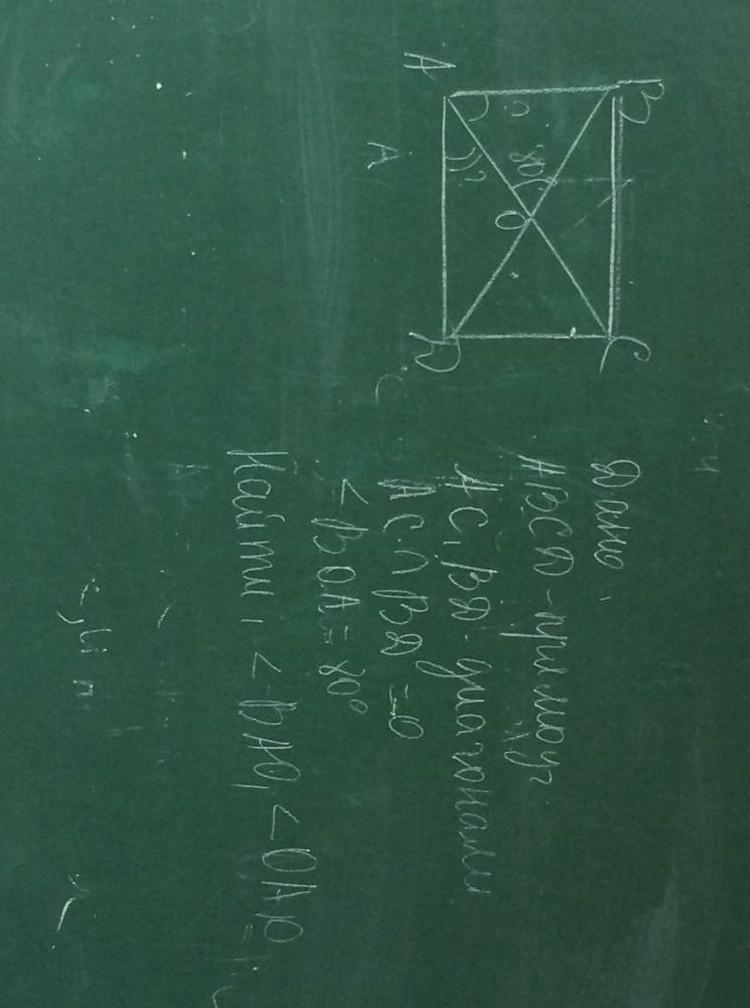 A
B
80°
?
O
D
C
A
Дано:
ABCD - прямоуг
AC, BD - диагонали
AC ∩ BD = O
∠BOA = 80°
Найти: ∠BAO, ∠OAD = ?